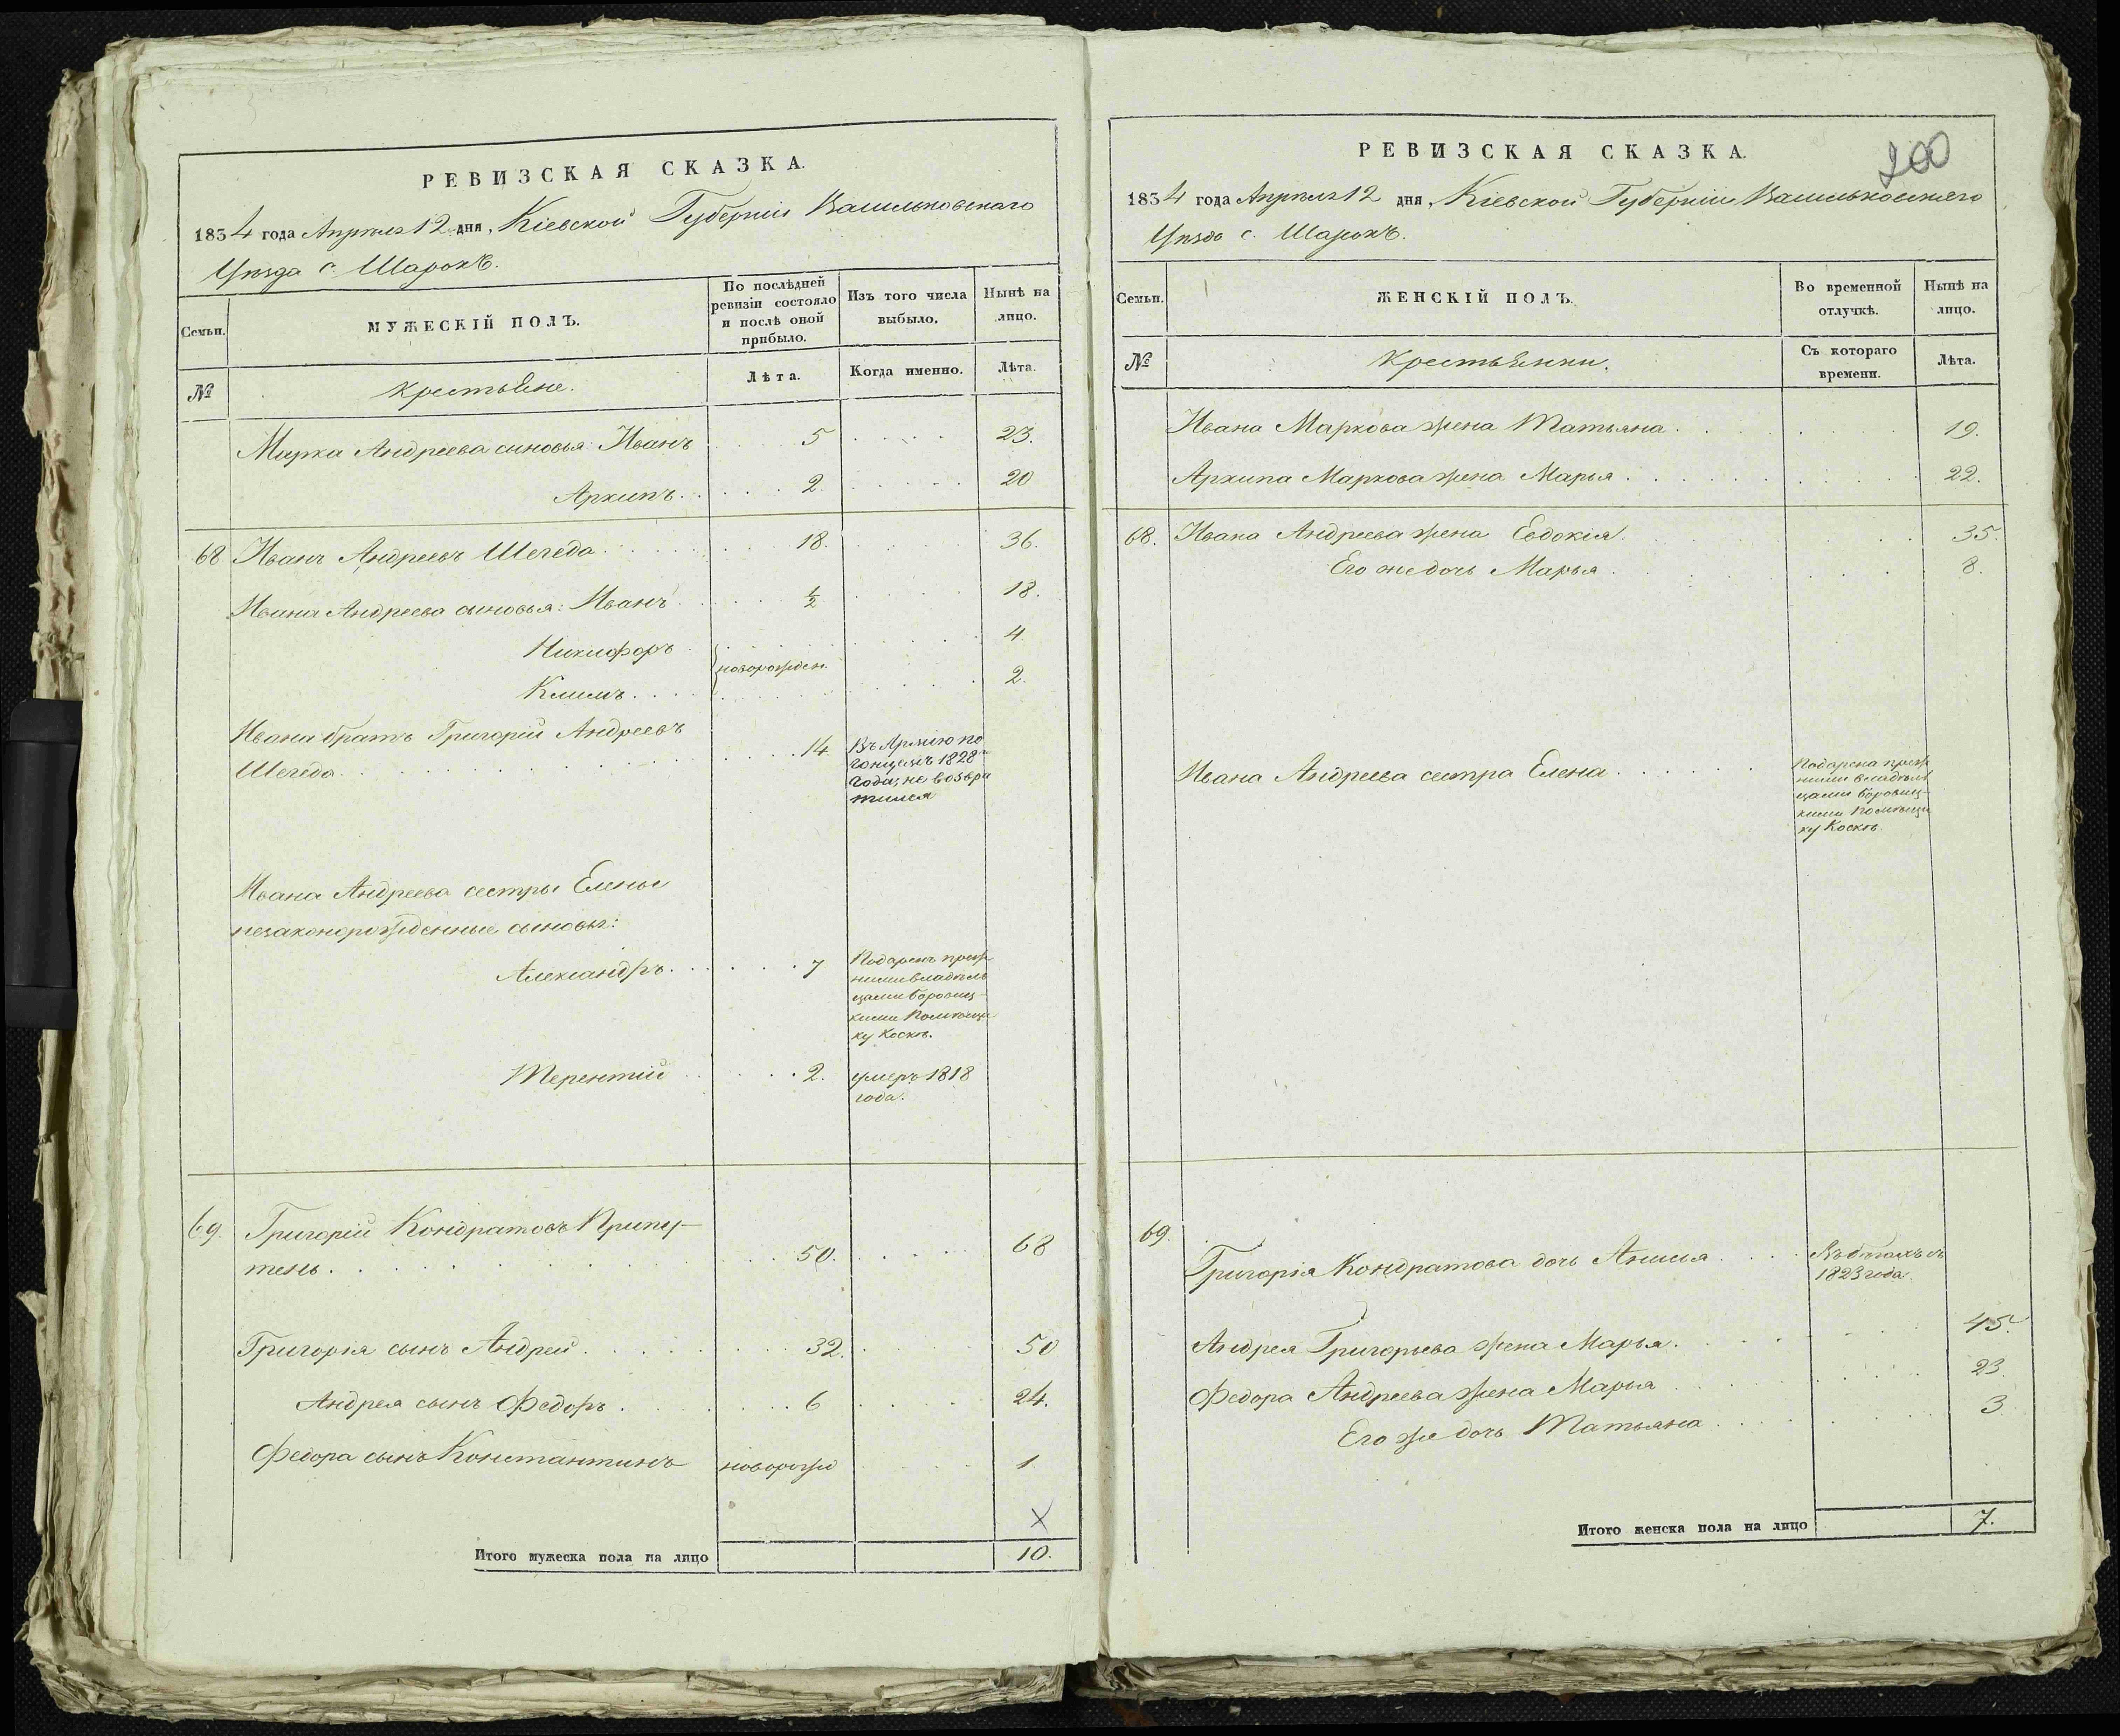 РЕВИЗСКАЯ СКАЗКА.
1834 года Апрѣля 12 дня, Кіевской Губерніи Васильковскаго
Уѣзда с. Шарокъ.
Семьи.
МУЖЕСКІЙ ПОЛЪ.
По послѣдней
ревизіи состояло
и послѣ оной
прибыло.
Изъ того числа
выбыло.
Нынѣ на
лицо.
№
крестьяне.
Лѣта.
Когда именно.
Лѣта.
Марка Андреева сыновья: Иванъ 5 23.
Архипъ 2. 20
68 Иванъ Андреевъ Шегеда 18. 36.
Ивана Андреева сыновья: Иванъ ½ 18.
Никифоръ 4.
новорожден.
Климъ 2.
Ивана братъ Григорій Андреевъ
Шегеда 14.
Въ Армію по
гонцемъ 1828
года, не возвра
тился
Ивана Андреева сестры Елены
незаконорожденные сыновья:
Александръ 7
Подаренъ преж
ними владѣль
цами Боровиц-
кими Помѣщи
ку Коскѣ.
Терентій 2. умеръ 1818
года.
69. Григорій Кондратовъ Припу-
тень 50. 68
Григорія сынъ Андрей 32. 50
Андрея сынъ Федоръ 6 24.
Федора сынъ Константинъ новорожд 1
Итого мужеска пола на лицо 10.
200
РЕВИЗСКАЯ СКАЗКА.
1834 года Апрѣля 12 дня, Кіевской Губерніи Васильковскаго
Уѣзда с. Шарокъ.
Семьи.
ЖЕНСКІЙ ПОЛЪ.
Во временной
отлучкѣ.
Нынѣ на
лицо.
№
крестьянки.
Съ котораго
времени.
Лѣта.
Ивана Маркова жена Татьяна 19.
Архипа Маркова жена Марья 22.
68. Ивана Андреева жена Евдокія 35.
Его же дочь Марья 8.
Ивана Андреева сестра Елена
Подарена преж
ними владѣль
цами Боровиц-
кими Помѣщи
ку Коскѣ.
69.
Григорія Кондратова дочь Анисья
Въ бѣгахъ съ
1823 года.
Андрея Григорьева жена Марья 45.
Федора Андреева жена Марья 23.
Его же дочь Татьяна 3
Итого женска пола на лицо 7.